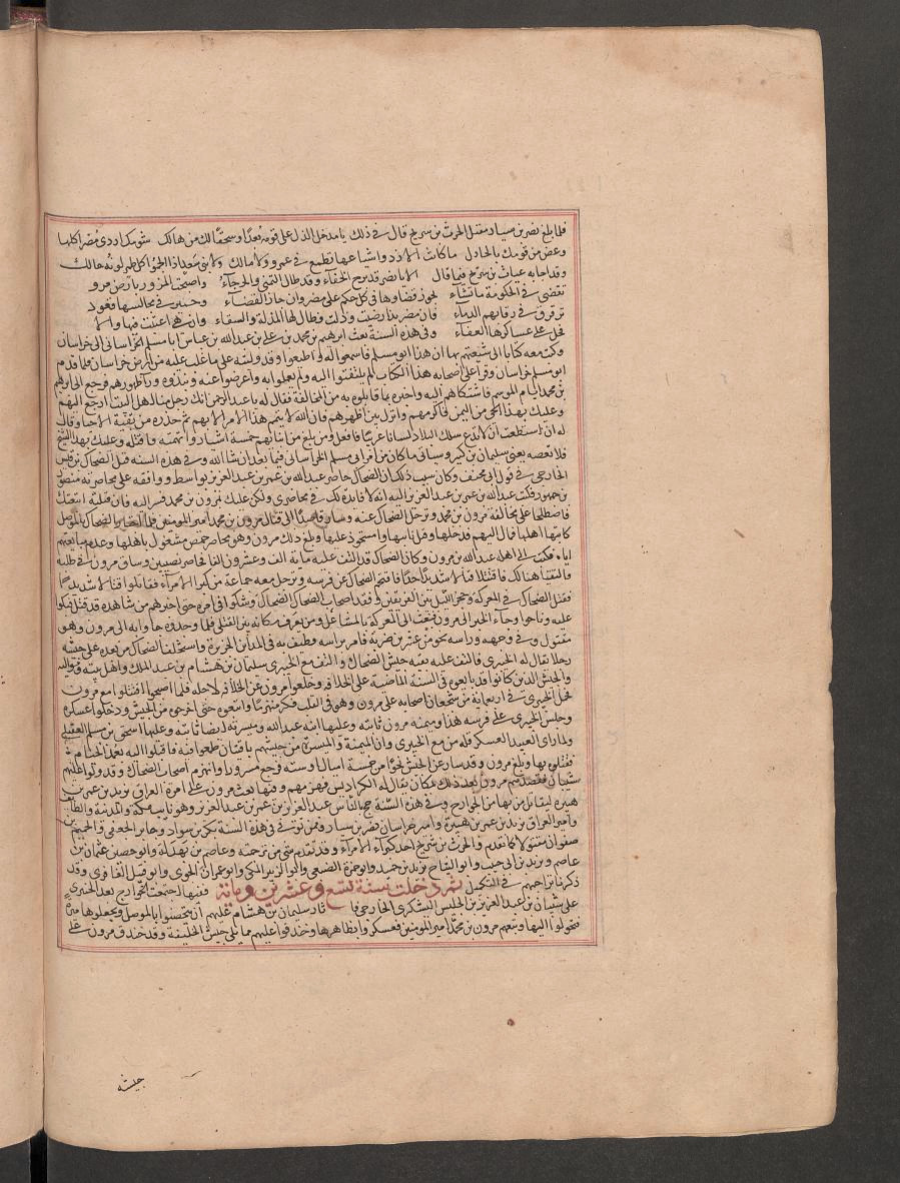 فلما بلغ نصر بن سيار مقتل الحرث بن سريج قال في ذلك يا مدخل الذل على قومه بعدا وسحقا لك من هالك شومك اردى مضر كلها
وعض من قومك بالحارك ما كانت الازد واشياعها تطمع في عمرو ولا مالك ولا بني سعد اذا الجموا كل طمر لونه حالك
وقد اجابه عباد بن فيما قال الا يا نصر قد برح الخفاء وقد طال التمني والرجاء واصبحت المزون بارض مرو
تقضي في الحكومة ما تشاء يجوز قضاوها في كل حكم على مضر وان جار القضاء وحمير في مجالسها قعود
ترقرق في رقابهم الدماء فان مضر بذا رضيت وذلت فطال لها المذلة والشقاء وان هي اعتبت فيها والا
فحل على عساكرها العفاء وفي هذه السنة بعث ابرهيم بن محمد بن علي بن عبد الله بن عباس ابا مسلم الخراساني الى خراسان
وكتب معه كتابا الى شيعتهم بها ان هذا ابو مسلم فاسمعوا له واطيعوا وقد وليته على ما غلب عليه من ارض خراسان فلما قدم
ابو مسلم خراسان وقرا على اصحابه هذا الكتاب لم يلتفتوا اليه ولم يعملوا به واعرضوا عنه ونبذوه ورا ظهورهم فرجع الى ابرهيم
بن محمد ايام الموسم فاشتكاهم اليه واخبره بما قابلوه به من المخالفة فقال له يا عبد الرحمن انك رجل منا اهل البيت ارجع اليهم
وعليك بهذا الحي من اليمن فاكرمهم وانزل بين اظهرهم فان الله لا يتم هذا الامر الا بهم ثم حذره من بقية الاحيا وقال
له ان استطعت ان لا تدع بتلك البلاد لسانا عربيا فافعل ومن بلغ من ابنائهم خمسة اشبار واتهمته فاقتله وعليك بهذا الشيخ
فلا تعصه يعني سليمان بن كثير وسياتي ما كان من امر ابي مسلم الخراساني فيما بعد ان شا الله وفي هذه السنه قتل الضحاك بن قيس
الخارجي في قول ابي مخنف وكان سبب ذلك ان الضحاك حاصر عبد الله بن عمر بن عبد العزيز بواسط ووافقه على محاصرته منصور
بن جمهور فكتب عبد الله بن عمر بن عبد العزيز اليه انه لا فايدة لك في محاصرتي ولكن عليك بمرون بن محمد فسر اليه فان قتلته اتبعتك
فاصطلحا على مخالفة مرون بن محمد وترحل الضحاك عنه وسار قاصدا الى قتال مرون بن محمد امير المومنين فلما اجتاز الضحاك بالموصل
كاتبه اهلها فمال اليهم فدخلها وقتل نايبها واستحوذ عليها وبلغ ذلك مرون وهو محاصر حمص مشغول باهلها وعدم مبايعتهم
اياه فكتب الى ابنه عبد الله بن مرون وكان الضحاك قد التف عليه ماية الف وعشرون الفا فحاصر نصيبين وساق مرون في طلبه
فالتقيا هنالك فاقتتلا قتالا شديدا جدا فاقتحم الضحاك عن فرسه وترجل معه جماعة من كبرا الامراء فقاتلوا قتالا شديدا
فقتل الضحاك في المعركة وحجز الليل بين الفريقين وفقد اصحاب الضحاك الضحاك وشكوا في امره حتى اخبرهم من شاهده قد قتل فبكوا
عليه وناحوا وجاء الخبر الى مرون فبعث الى المعركة بالمشاعل ومن يعرف مكانه بين القتلى فلما وجدوه جاوا به الى مرون وهو
مقتول وفي وجهه وراسه نحو من عشرين ضربة فامر براسه فطيف به في المداين الجزيرة واستخلف الضحاك من بعده على جيشه
رجلا يقال له الخيبري فالتف عليه بقية جيش الضحاك والتف مع الخيبري سليمان بن هشام بن عبد الملك واهل بيته ومواليه
والجيش الذين كانوا قد بايعوه في السنة الماضية على الخلافة وخلعوا مرون عن الخلافة لاجله فلما اصبحوا اقتتلوا مع مرون
فحمل الخيبري في اربعماية من شجعان اصحابه على مرون وهو في القلب فكر منهزما واتبعوه حتى اخرجوه من الجيش ودخلوا عسكره
وجلس الخيبري على فرشه هذا وميمنة مرون ثابتة وعليها ابنه عبد الله وميسرته ايضا ثابتة وعليها اسحق بن مسلم العقيلي
ولما راى العبيد العسكر قلة من مع الخيبري وان الميمنة والميسرة من جيشهم باقيتان طمعوا فيه فاقبلوا اليه بعمد الخيام
فقتلوه بها وبلغ مرون وقد سار عن الجيش نحوا من خمسة اميال او ستة فرجع مسرورا وانهزم اصحاب الضحاك وقد ولوا عليهم
شيبان فقصدهم مرون بعد ذلك بمكان يقال له الكراديس فهزمهم وفيها بعث مرون على امرة العراق يزيد بن عمر بن
هبيرة ليقاتل من بها من الخوارج وفي هذه السنة حج بالناس عبد العزيز بن عمر بن عبد العزيز وهو نايب مكة والمدينة والطايف
وامير العراق يزيد بن عمر بن هبيرة وامير خراسان نصر بن سيار وممن توفي في هذه السنة بكر بن سوادة وجابر الجعفي والجهم بن
صفوان مقتولا كما تقدم والحرث بن شريح احد كبراء الامراء وقد تقدم شي من ترجمته وعاصم بن بهدلة وابو حصين عثمان بن
عاصم ويزيد بن ابي حبيب وابو التياح يزيد بن حميد وابو جمرة الضبعي وابو الزبير المكي وابو عمران الجوني وابو قبيل المعافري وقد
ذكرنا تراجمهم في التكميل ثم دخلت سنة تسع وعشرين وماية فيها اجتمعت الخوارج بعد الخيبري
على شيبان بن عبد العزيز بن الحليس اليشكري الخارجي فاشار سليمان بن هشام عليهم ان يتحصنوا بالموصل ويجعلوها منزلا
فتحولوا اليها وتبعهم مرون بن محمد امير المومنين فعسكروا بظاهرها وخندقوا عليهم مما يلي جيش الخليفة وقد خندق مرون على
جيشه